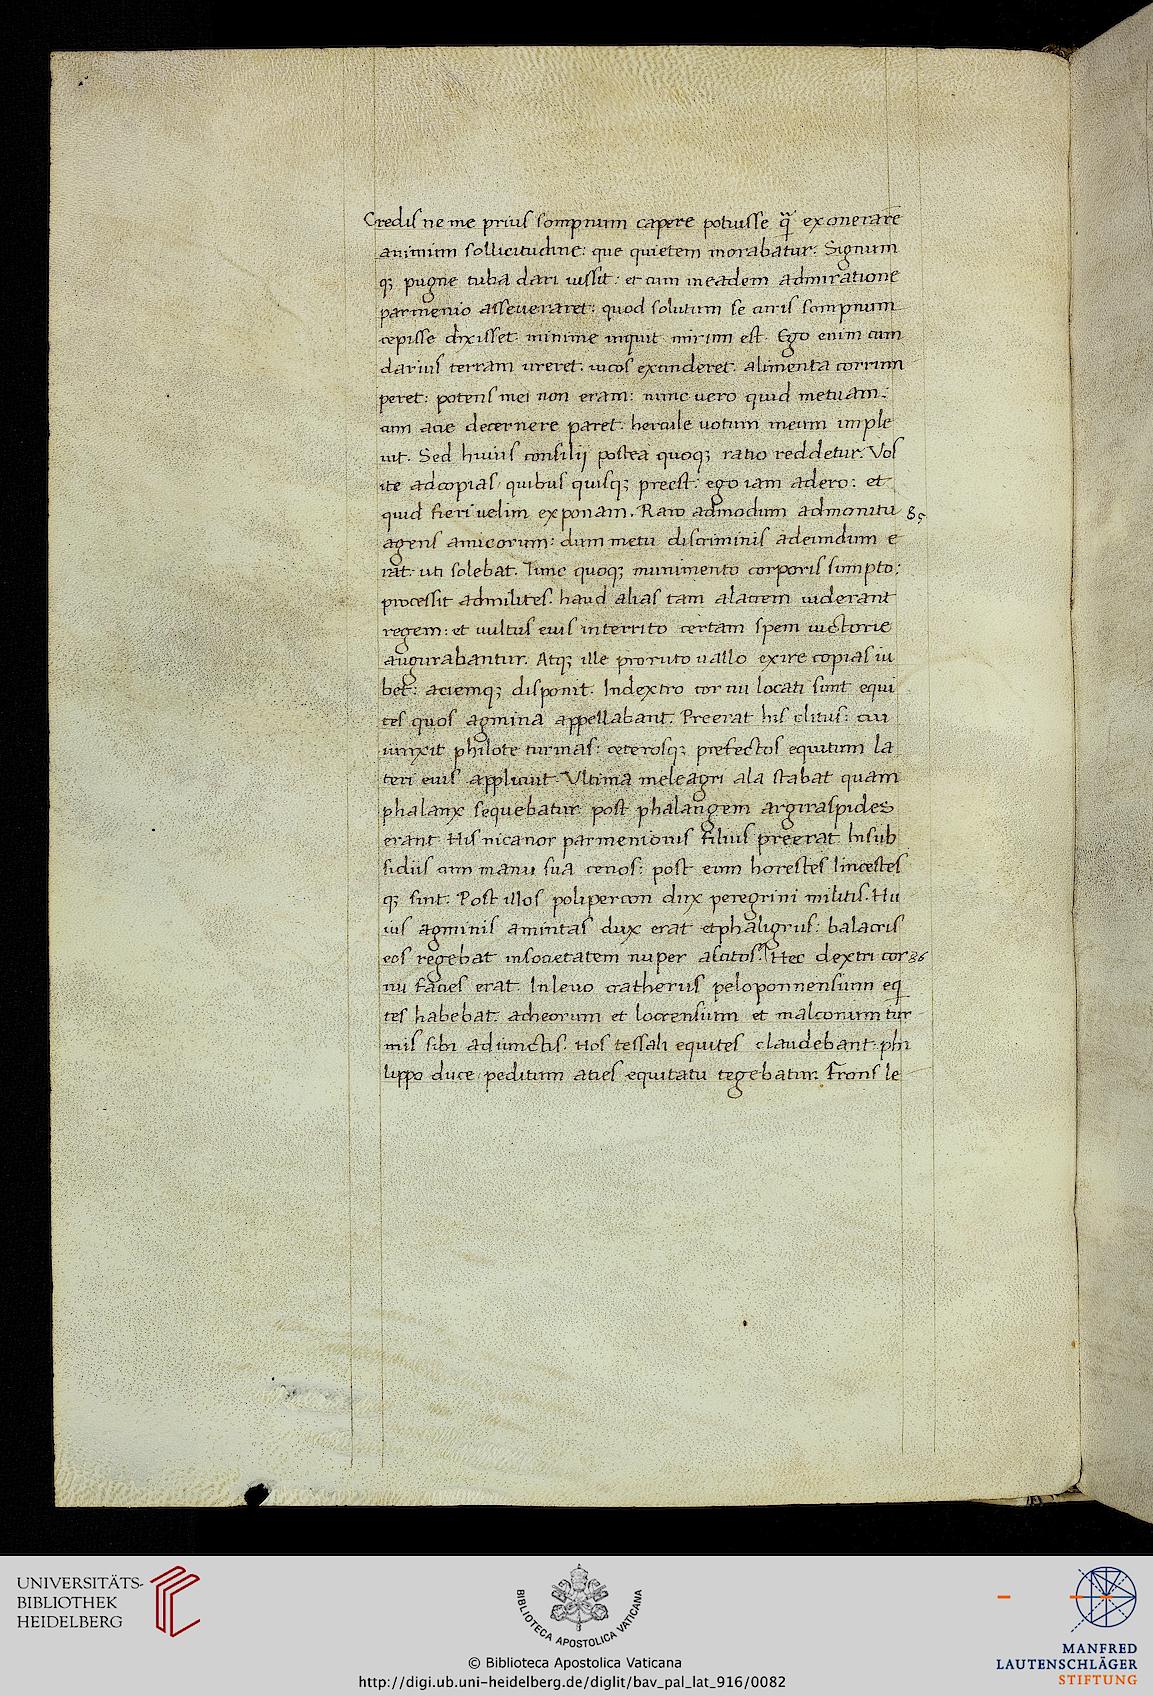 Credis ne me prius sompnum capere potuisse q̃ exonerare
animum sollicitudine: que quietem morabatur: Signum
q; pugne tuba dari iussit: et cum in eadem admiratione
parmenio asseueraret: quod solutum se curis sompnum
cepisse dixisset: minime inquit mirum est. Ego enim cum
darius terram ureret. uicos exscinderet. alimenta corrum
peret: potens mei non eram: nunc uero quid metuam:
cum acie decernere paret. hercule uotum meum imple
uit. Sed huius consilij postea quoq; ratio reddetur. Vos
ite ad copias quibus quisq; preest: ego iam adero: et
quid fieri uelim exponam. Raro admodum admonitu 85
agens amicorum: dum metu discriminis adeundum e
rat. uti solebat. Tunc quoq; munimento corporis sumpto:
processit ad milites. haud alias tam alacrem uiderant
regem: et uultus eius interrito certam spem uictorie
augurabantur. Atq; ille proruto uallo exire copias iu
bet: aciemq; disponit. In dextro cornu locati sunt equi
tes quos agmina appellabant. Preerat his clitus: cui
iunxit philote turmas: ceterosq; prefectos equitum la
teri eius applicuit. Vltima meleagri ala stabat quam
phalanx sequebatur. post phalangem argiraspides
erant. His nicanor parmenionis filius preerat. hi sub
sidiis cum manu sua cenos: post eum horestes lincestes
q; sunt. Post illos polipercon dux peregrini militis. Hu
ius agminis amintas dux erat et phaligrus: balacris
eos regebat in societatem nuper ascitos. Hec dextri cor 86
nu facies erat. In leuo cratherus peloponnensium eq̃
tes habebat. acheorum et locrensium et malconum tur
mis sibi adiunctis. Hos tessali equites claudebant. phi
lippo duce. peditum aties equitatu tegebatur. Frons le
UNIVERSITÄTS-
BIBLIOTHEK
HEIDELBERG
BIBLIOTECA APOSTOLICA VATICANA
© Biblioteca Apostolica Vaticana
http://digi.ub.uni-heidelberg.de/diglit/bav_pal_lat_916/0082
MANFRED
LAUTENSCHLÄGER
STIFTUNG